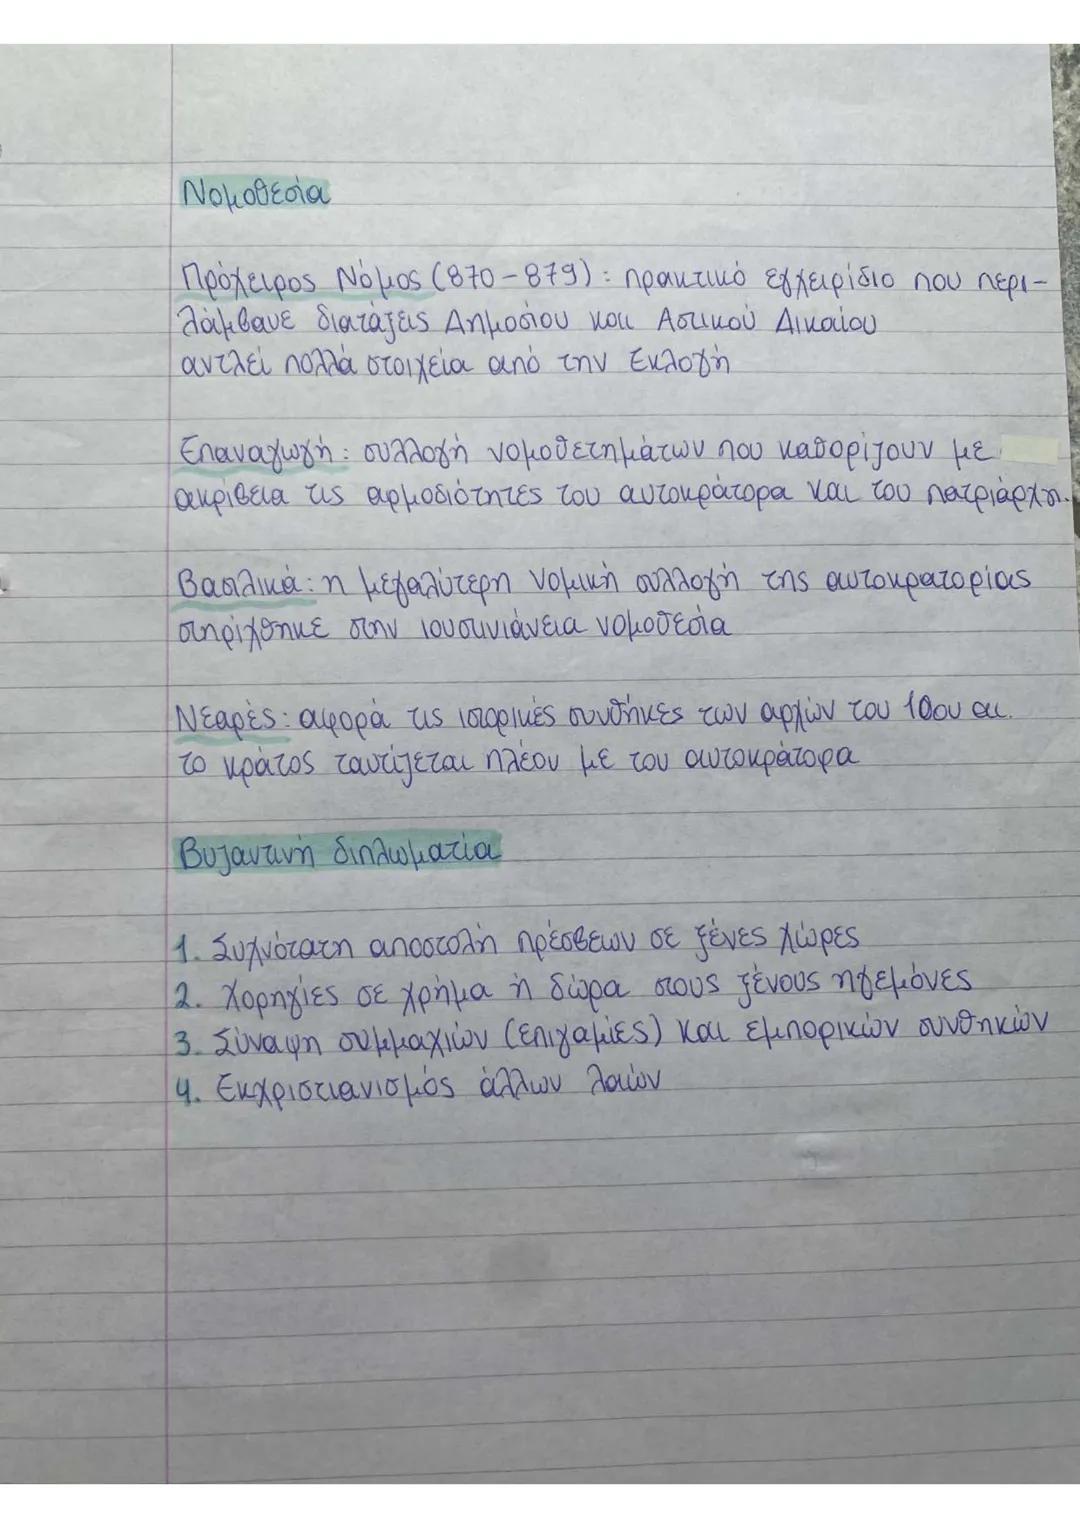 Νομοθεσία
Πρόχειρος Νόμος (870-879): πρακτικό εγχειρίδιο που περι-
λάμβανε διατάξεις Δημοσίου και Αστικού Δικαίου
αντλεί πολλά στοιχεία από την Εκλογή
Επαναγωγή: συλλογή νομοθετημάτων που καθορίζουν με
ακρίβεια τις αρμοδιότητες του αυτοκράτορα και του πατριάρχη.
Βασιλικά: η μεγαλύτερη νομική συλλογή της αυτοκρατορίας
στηρίχθηκε στην ιουστινιάνεια νομοθεσία
Νεαρές: αφορά τις ιστορικές συνθήκες των αρχών του 10ου αι.
το κράτος ταυτίζεται πλέον με του αυτοκράτορα
Βυζαντινή διπλωματία
1. Συχνότατη αποστολή πρέσβεων σε ξένες χώρες
2. Χορηγίες σε χρήμα ή δώρα στους ξένους ηγεμόνες
3. Σύναψη συμμαχιών (επιγαμίες) και εμπορικών συνθηκών
4. Εκχριστιανισμός άλλων λαών